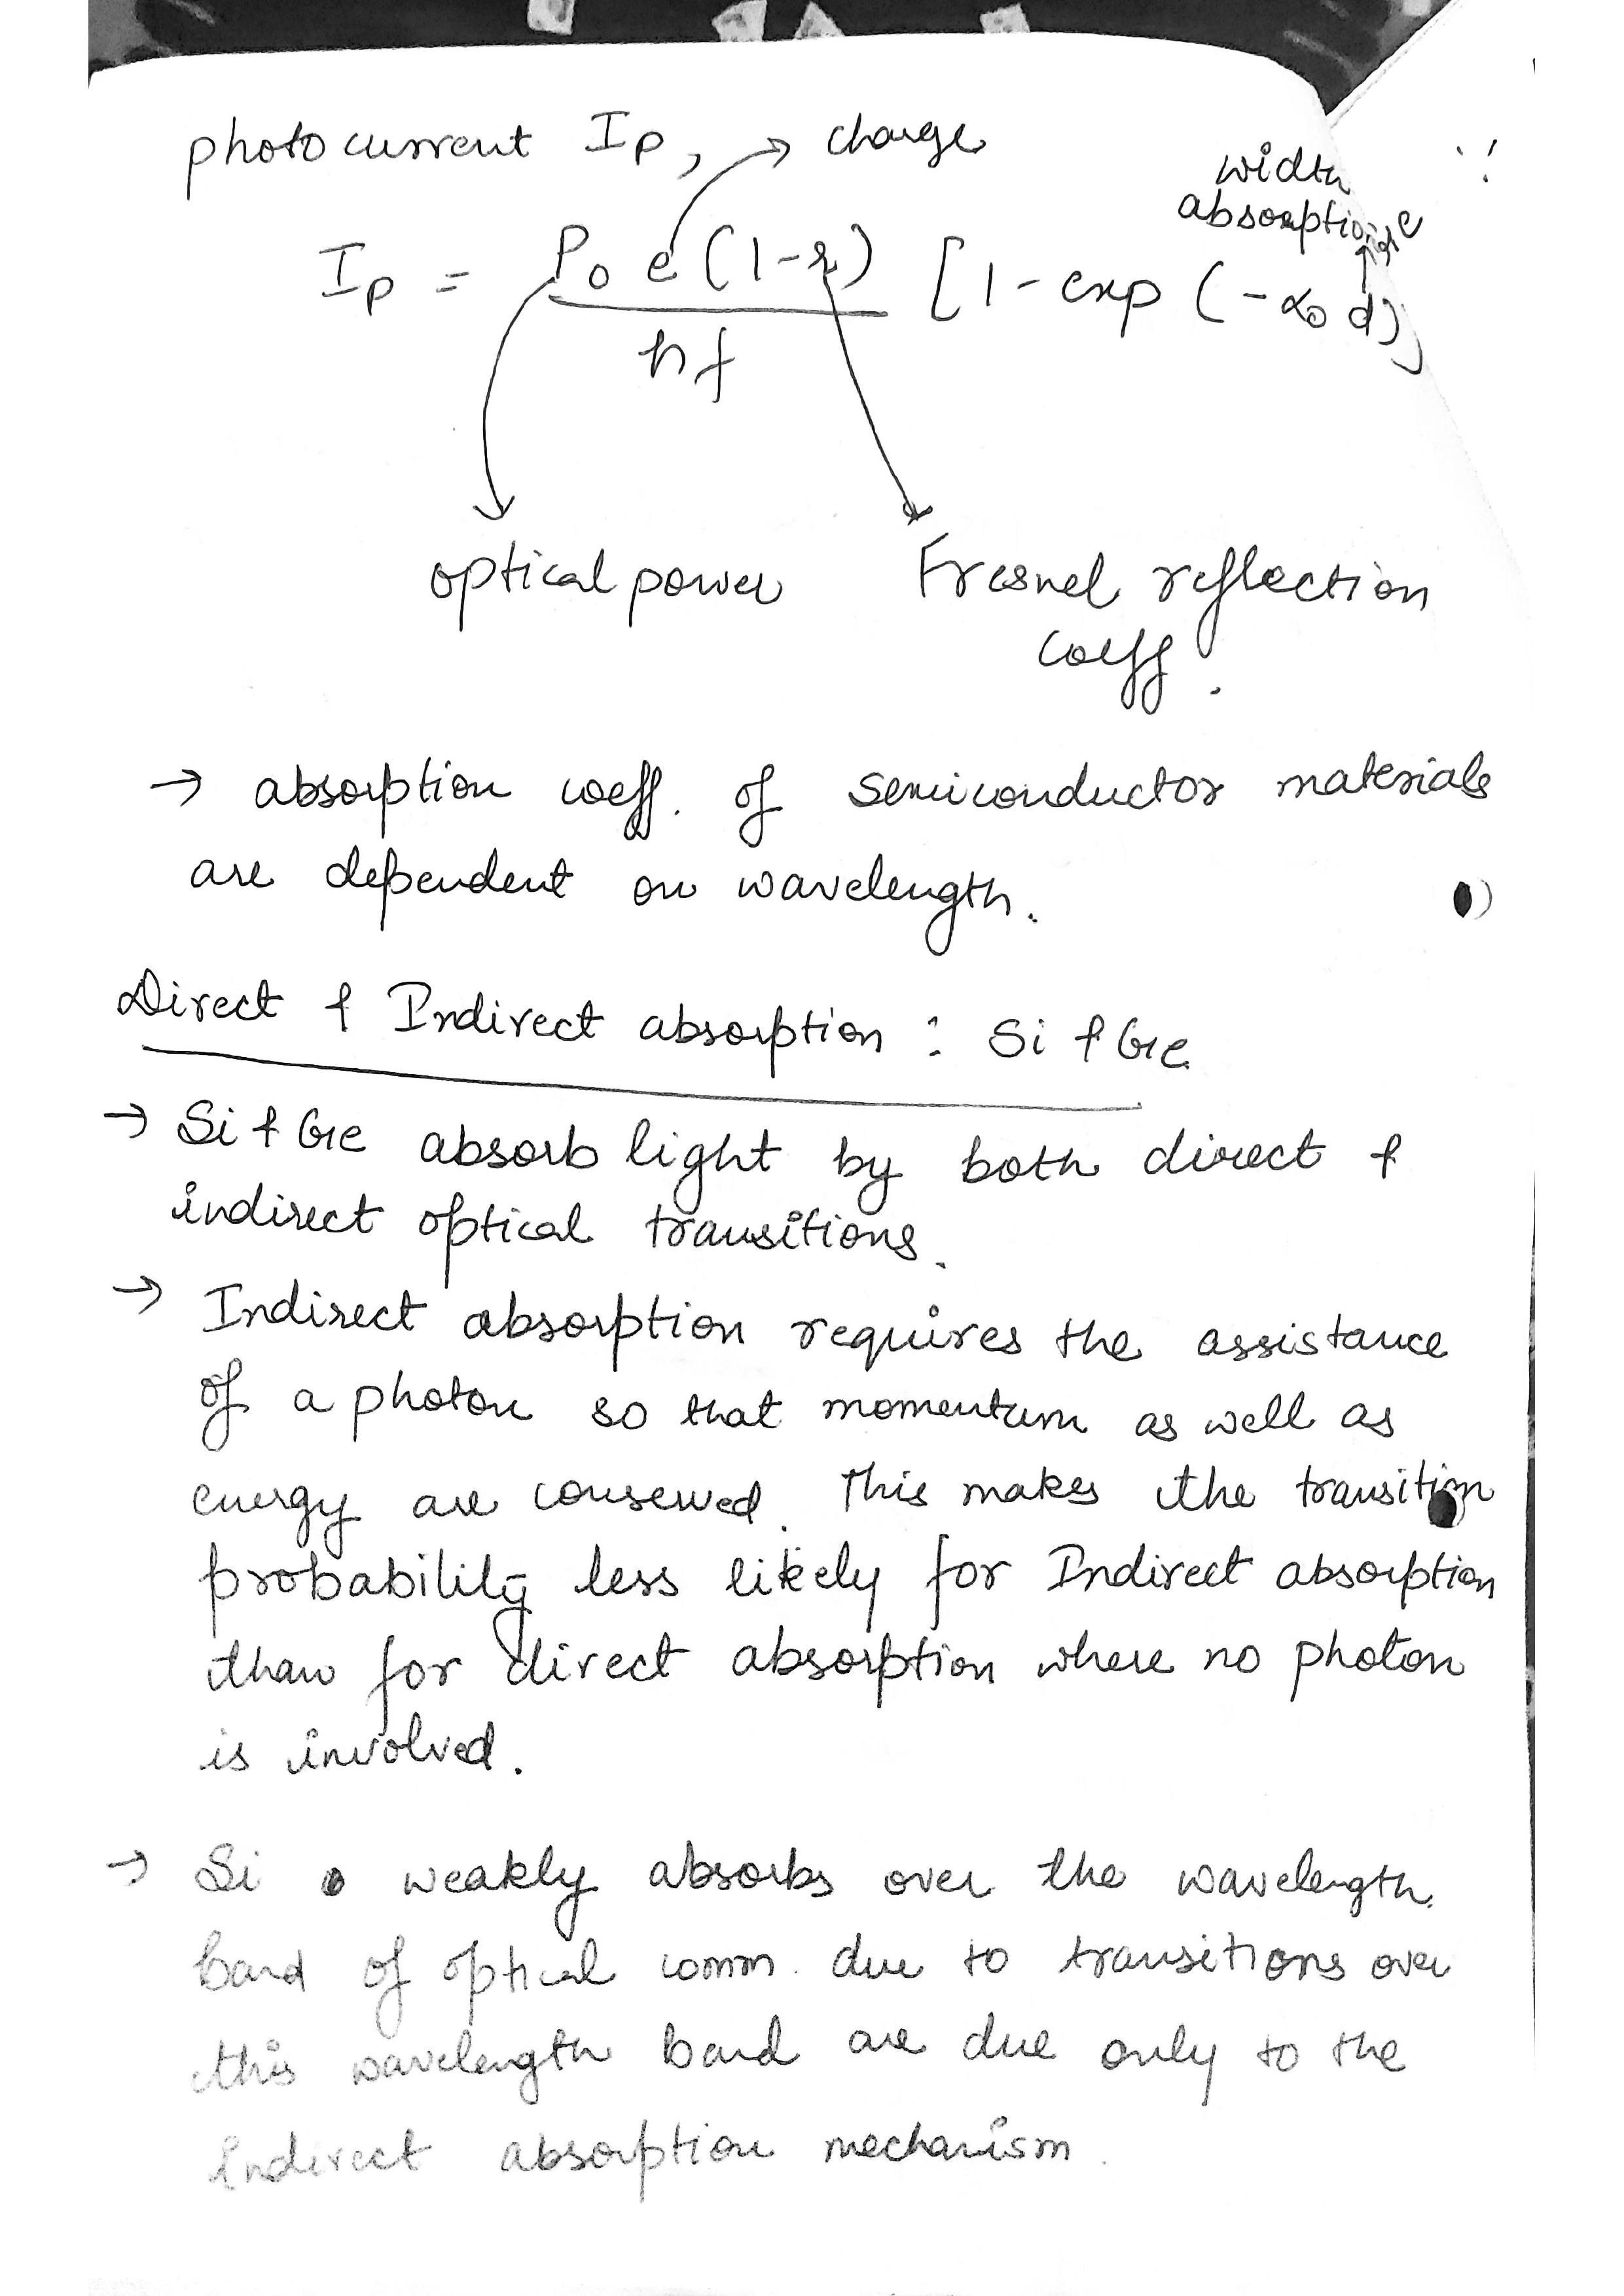 photocurrent Ip, → charge
width
absorption
Ip = P₀ e (1-r) / hf [1 - exp (-α₀ d)]
optical power
Fresnel reflection
coeff.
→ absorption coeff. of semiconductor materials
are dependent on wavelength.
Direct & Indirect absorption : Si & Ge
→ Si & Ge absorb light by both direct &
indirect optical transitions.
→ Indirect absorption requires the assistance
of a photon so that momentum as well as
energy are conserved. This makes the transition
probability less likely for Indirect absorption
than for direct absorption where no photon
is involved.
→ Si weakly absorbs over the wavelength
band of optical comm. due to transitions over
this wavelength band are due only to the
indirect absorption mechanism.